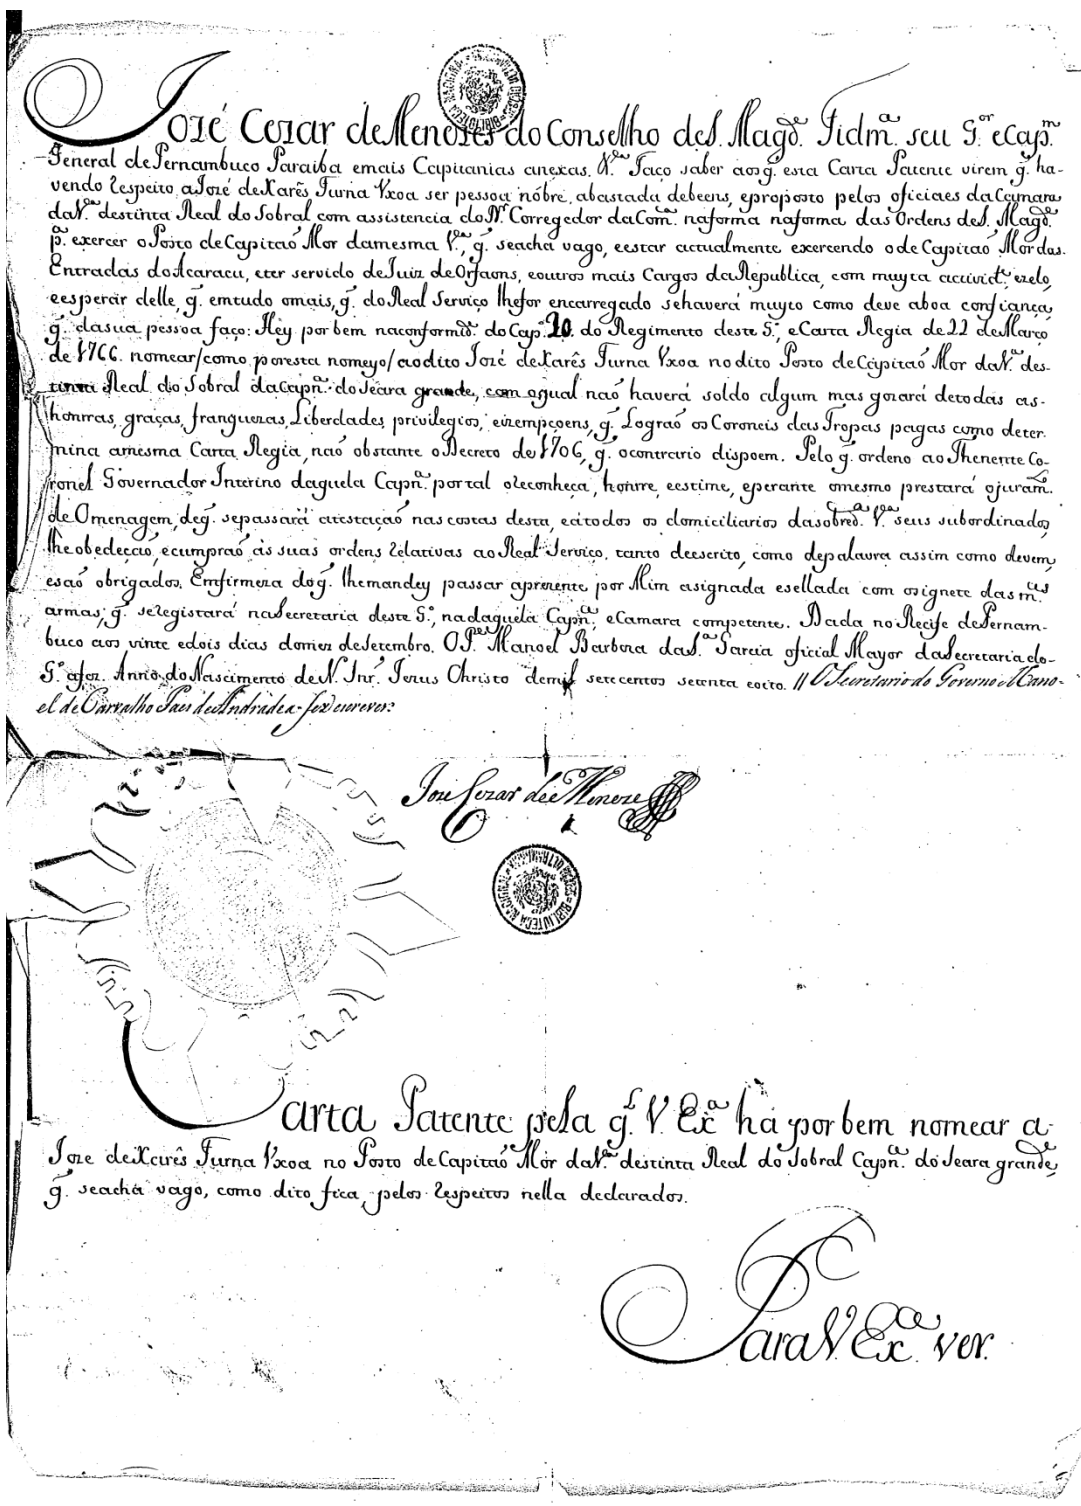 José Cezar de Menezes do Conselho de S. Magde. Fidma. seu Gor. e Capm.
General de Pernambuco Paraiba emais Capitanias anexas. &ra. Faço saber aos q̃. esta Carta Patente virem q̃. ha-
vendo respeito a José de Xarês Furna Uxoa ser pessoa nóbre, abastada debeens, eproposto pelos oficiaes da Camara
da Va. destinta Real do Sobral com assistencia do Dr. Corregedor da Coma. naforma naforma das Ordens de S. Magde.
pa. exercer o Posto de Capitaó Mor damesma Va., q̃. seachá vago, eestar actualmente exercendo o de Capitaó Mor das
Entradas do Acaracu, eter servido de Juiz de Orfaons, eoutros mais Cargos da Republica, com muyta activide. ezelo,
eesperar delle, q̃. emtudo omais, q̃. do Real Serviço lhefor encarregado sehaverá muyto como deve aboa confiança,
q̃. dasua pessoa faço: Hey por bem naconformide. do Capo. 10. do Regimento deste Go., e Carta Regia de 22 de Março
de 1766. nomear/como poresta nomeyo/ aodito José de Xarês Furna Uxoa no dito Posto de Capitaó Mor da Va. des-
tinta Real do Sobral da Capna. do Seara grande, com oqual naó haverá soldo algum mas gozará detodas as-
honrras, graças, franquezas, Liberdades, privilegios, eizempçoens, q̃. Lograó os Coroneis das Tropas pagas como deter-
mina amesma Carta Regia, naó obstante o Decreto de 1706, q̃. ocontrario dispoem. Pelo q̃. ordeno ao Thenente Co-
ronel Governador Interino daquela Capna. portal oreconheça, honrre, eestime, eperante omesmo prestará ojuramto.
de Omenagem, deq̃. sepassará atestaçaó nas costas desta, eatodos os domiciliarios dasobreda. Va. seus subordinados,
lhe obedeçaó, ecumpraó as suas ordens relativas ao Real Serviço, tanto deescrito, como depalavra assim como devem,
esaó obrigados. Emfirmeza do q̃. lhemandey passar aprezente por Mim asignada esellada com osignete das mas.
armas; q̃. seregistará na Secretaria deste Go., nadaquela Capna., e Camara competente. Dada no Recife de Pernam-
buco aos vinte edois dias domez de Setembro. O Pe. Manoel Barboza da Sa. Garcia oficial Mayor da Secretaria do-
Go. afez. Anno do Nascimento de N. Snr. Jezus Christo demil setecentos setenta eoito. // O Secretario do Governo Mano-
el de Carvalho Paes de Andrade a fez escrever:
Jozé Cezar de Meneze
Carta Patente pela ql. V. Exa. há por bem nomear a-
Joze de Xarês Furna Uxoa no Posto de Capitaó Mór da Va. destinta Real do Sobral Capna. do Seara grande,
q̃. seachá vago, como dito fica, pelos respeitos nella declarados.
Para V. Exa. ver.